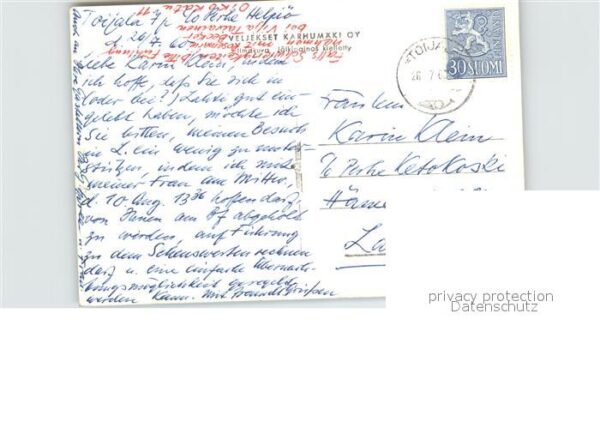 Toijala F/. c/o Perhe Helpiö
d. 26/7. 60
VELJEKSET KARHUMÄKI OY
Ilmakuva jälki-ainos kielletty
Liebe Karin Klein, indem
ich hoffe, daß Sie sich in
(oder bei?) Lahti gut ein-
gelebt haben, möchte ich
Sie bitten, meinen Besuch
in L. ein wenig zu unter-
stützen, indem ich mit
meiner Frau am Mittw,
d. 10 Aug. 13 36 hoffen darf,
von Ihnen am Bf abgeholt
zu werden, auf Führung
zu dem Sehenswerten rechnen
darf u. eine einfache Übernach-
tungsmöglichkeit geregelt
werden kann. Mit Freundl. Grüßen
TOIJALA
26 7 6
30 SUOMI
Fräulein
Karin Klein
c/o Perhe Ketokoski
Häme
La
privacy protection
Datenschutz